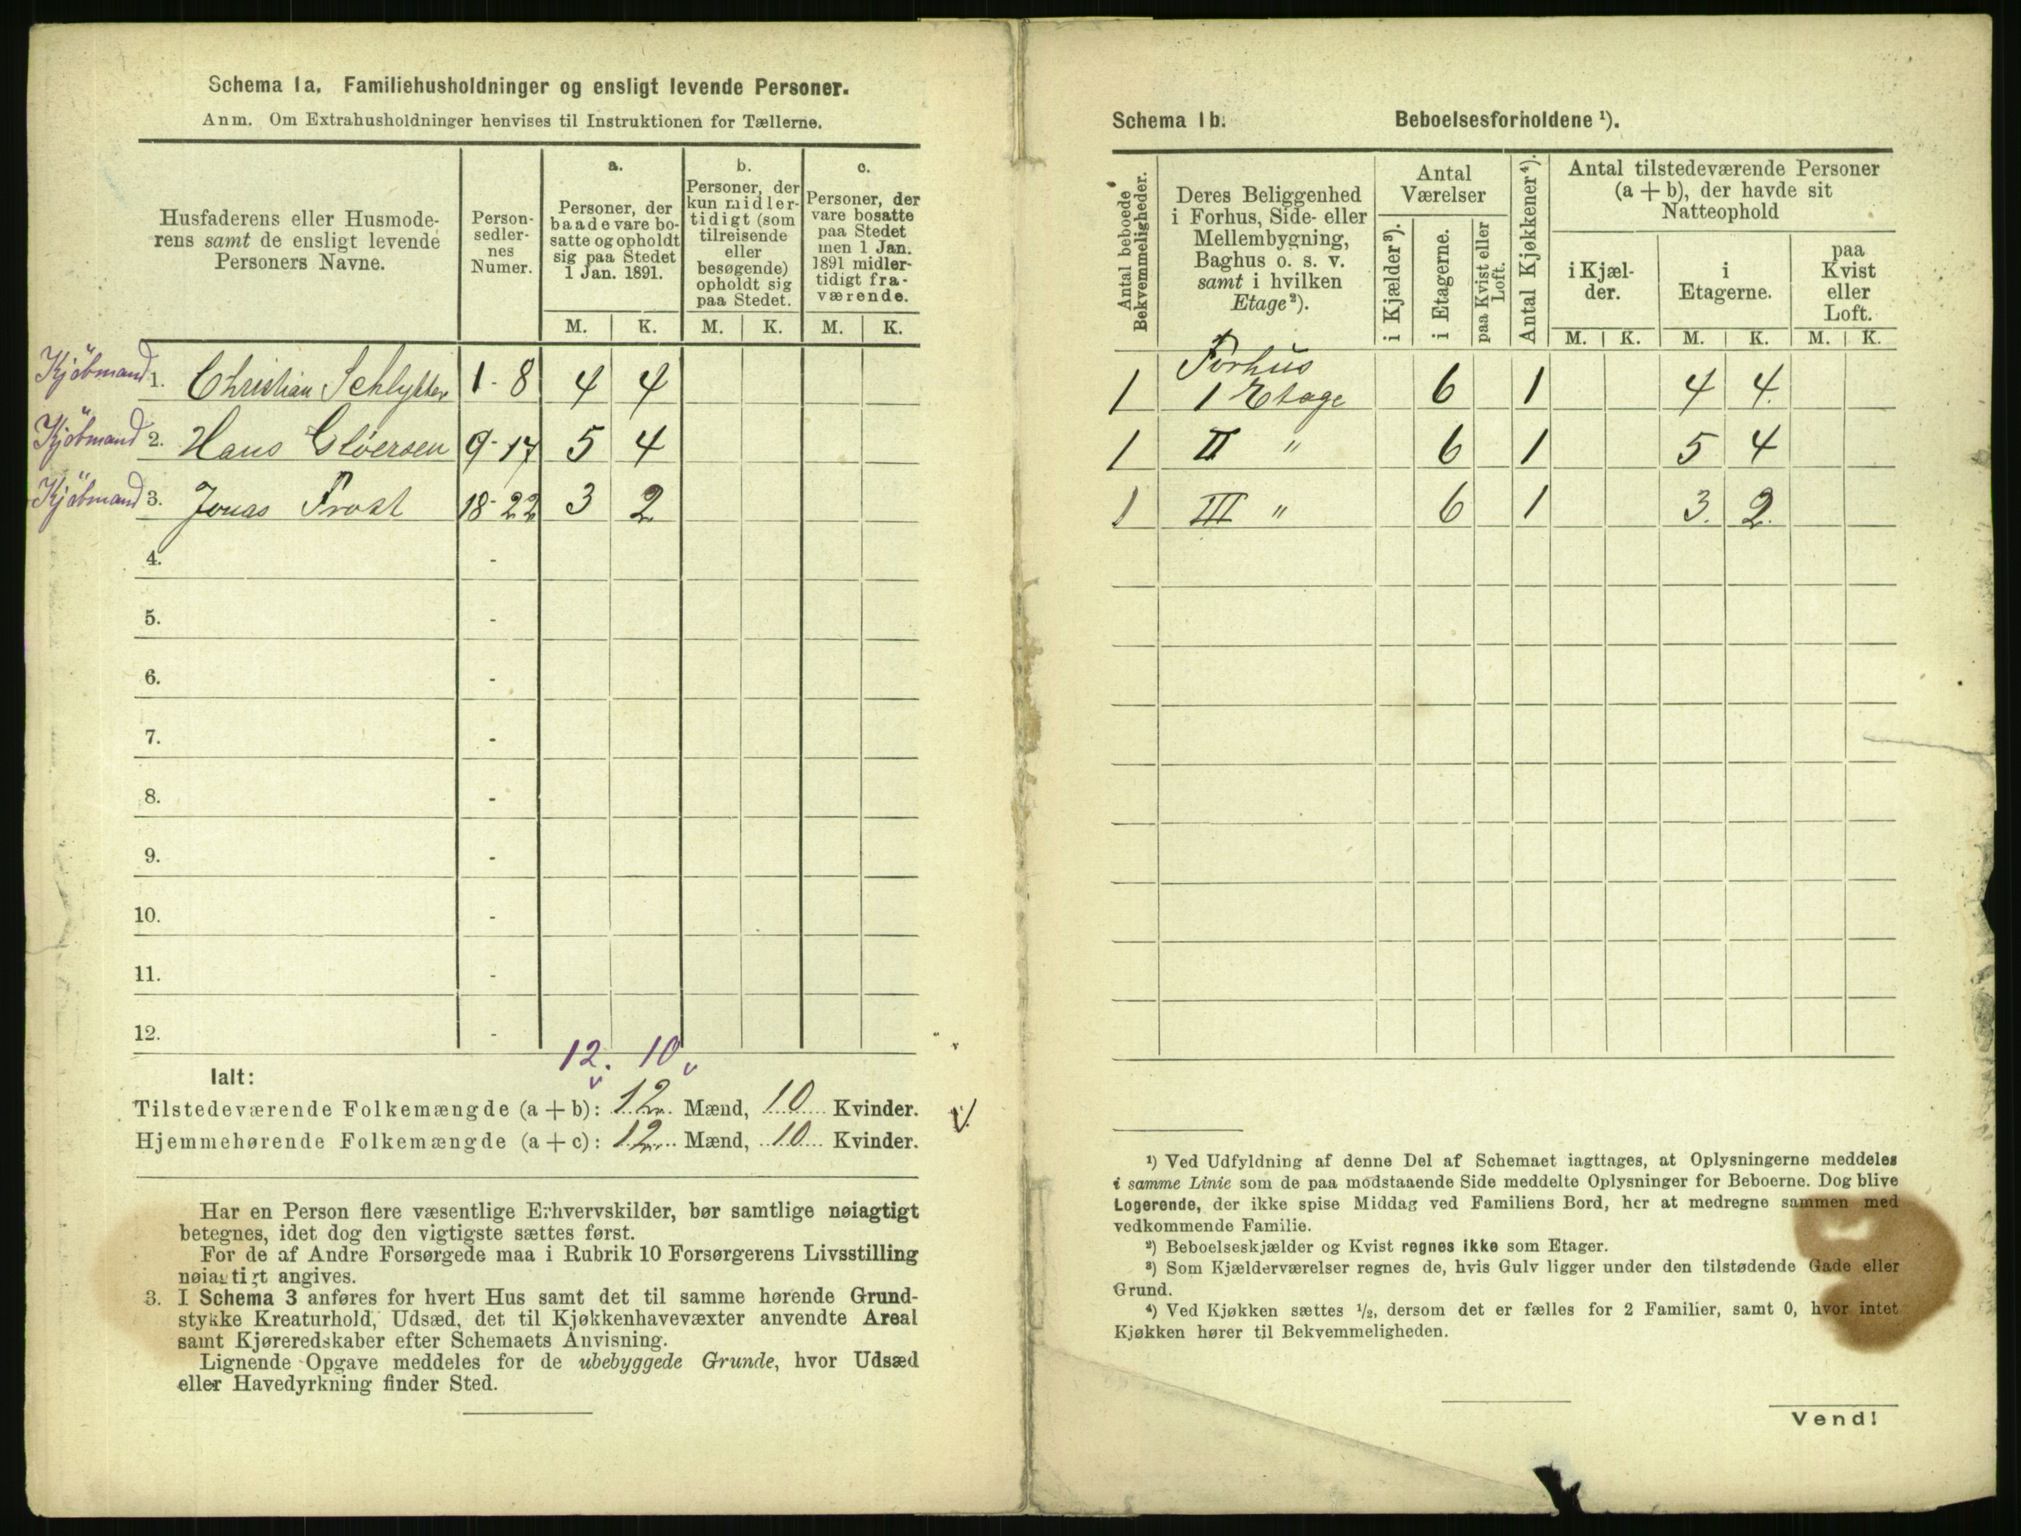 Schema 1a. Familiehusholdninger og ensligt levende Personer.
Anm. Om Extrahusholdninger henvises til Instruktionen for Tællerne.
Husfaderens eller Husmode-
rens samt de ensligt levende
Personers Navne.
Person-
sedler-
nes
Numer.
a.
Personer, der
baade vare bo-
satte og opholdt
sig paa Stedet
1 Jan. 1891.
b.
Personer, der
kun midler-
tidigt (som
tilreisende
eller
besøgende)
opholdt sig
paa Stedet.
c.
Personer, der
vare bosatte
paa Stedet
men 1 Jan.
1891 midler-
tidigt fra-
værende.
M. K. M. K. M. K.
Kjöbmand 1. Christian Schlytter 1-8 4 4
Kjöbmand 2. Hans Gløersen 9-17 5 4
Kjöbmand 3. Jonas Frost 18-22 3 2
4. -
5. -
6. -
7. -
8. -
9. -
10. -
11. -
12. -
12. 10
Ialt:
Tilstedeværende Folkemængde (a + b): 12 Mænd, 10 Kvinder.
Hjemmehørende Folkemængde (a + c): 12 Mænd, 10 Kvinder.
Har en Person flere væsentlige Erhvervskilder, bør samtlige nøiagtigt
betegnes, idet dog den vigtigste sættes først.
For de af Andre Forsørgede maa i Rubrik 10 Forsørgerens Livsstilling
nøiagtigt angives.
3. I Schema 3 anføres for hvert Hus samt det til samme hørende Grund-
stykke Kreaturhold, Udsæd, det til Kjøkkenhavevæxter anvendte Areal
samt Kjøreredskaber efter Schemaets Anvisning.
Lignende Opgave meddeles for de ubebyggede Grunde, hvor Udsæd
eller Havedyrkning finder Sted.
Schema 1b. Beboelsesforholdene ¹).
Antal beboede
Bekvemmeligheder.
Deres Beliggenhed
i Forhus, Side- eller
Mellembygning,
Baghus o. s. v.
samt i hvilken
Etage²).
Antal
Værelser
i Kjælder³).
i Etagerne.
paa Kvist eller
Loft.
Antal Kjøkkener⁴).
Antal tilstedeværende Personer
(a + b), der havde sit
Natteophold
i Kjæl-
der.
i
Etagerne.
paa
Kvist
eller
Loft.
M. K. M. K. M. K.
Forhus
1 1 Etage 6 1 4 4
1 II " 6 1 5 4
1 III " 6 1 3. 2.
¹) Ved Udfyldning af denne Del af Schemaet iagttages, at Oplysningerne meddeles
i samme Linie som de paa modstaaende Side meddelte Oplysninger for Beboerne. Dog blive
Logerende, der ikke spise Middag ved Familiens Bord, her at medregne sammen med
vedkommende Familie.
²) Beboelseskjælder og Kvist regnes ikke som Etager.
³) Som Kjælderværelser regnes de, hvis Gulv ligger under den tilstødende Gade eller
Grund.
⁴) Ved Kjøkken sættes 1/2, dersom det er fælles for 2 Familier, samt 0, hvor intet
Kjøkken hører til Bekvemmeligheden.
Vend!